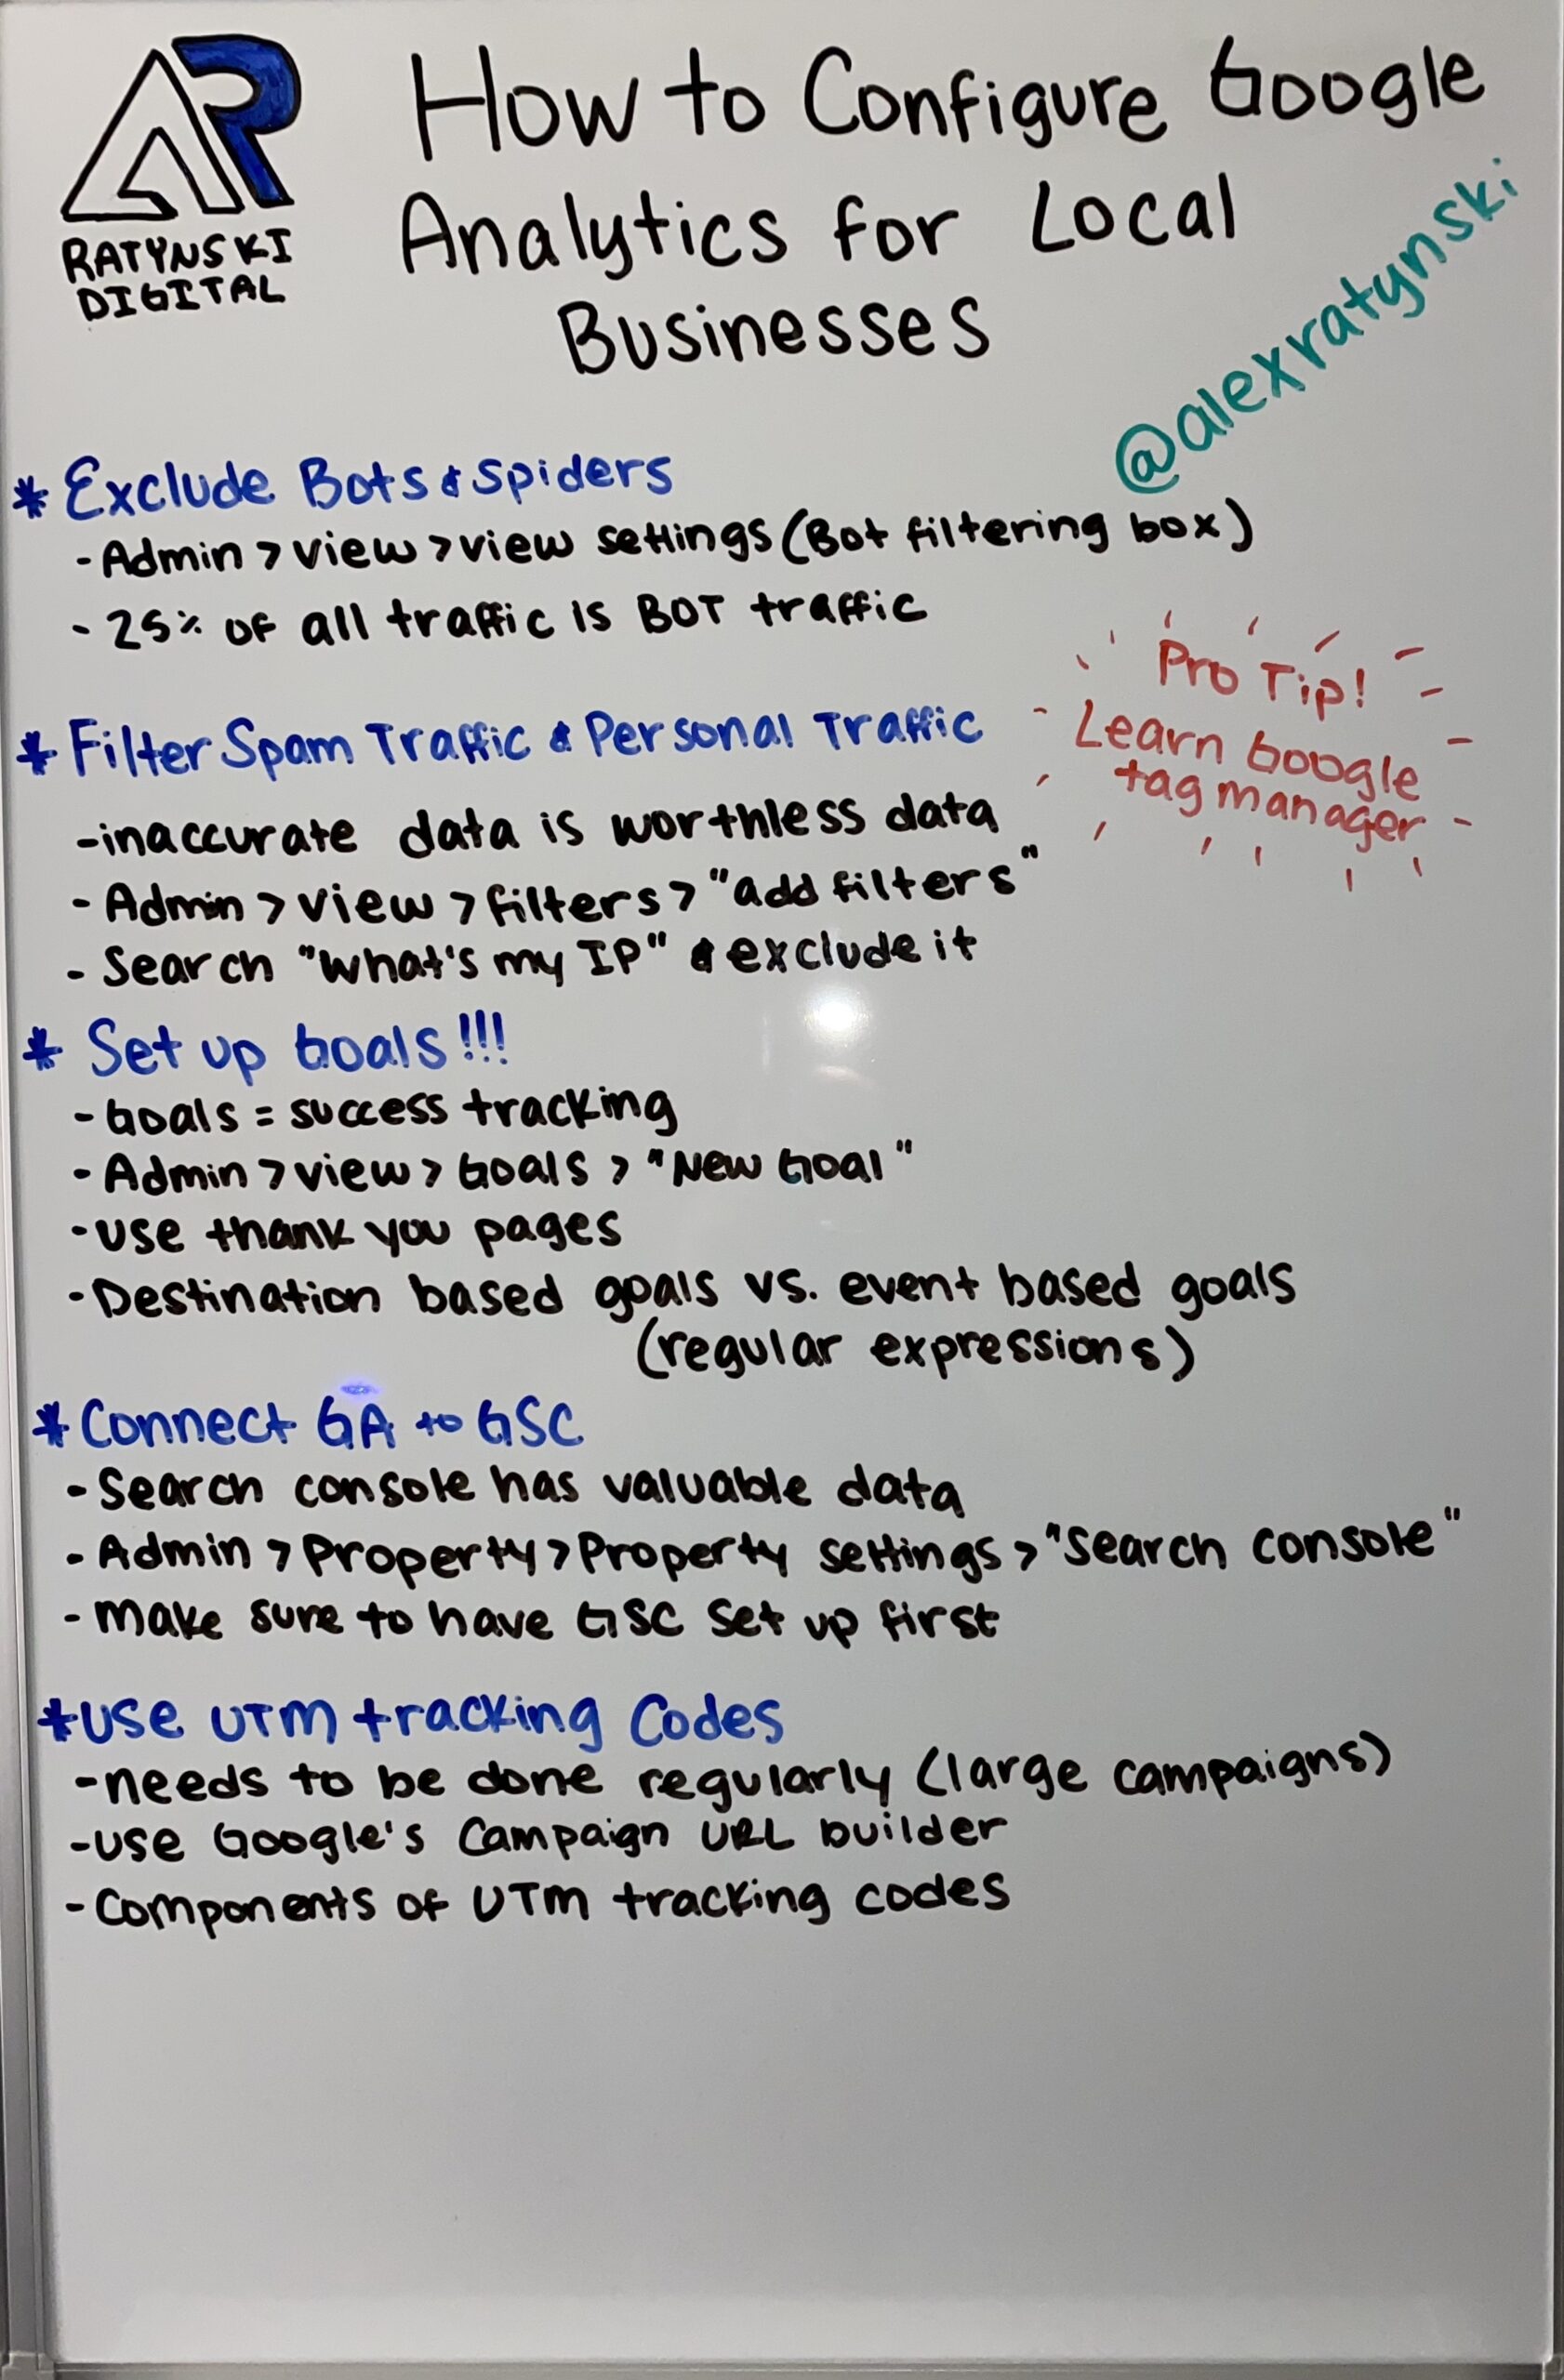 AR
RATYNSKI
DIGITAL
How to Configure Google
Analytics for Local
Businesses
@alexratynski
* Exclude Bots & Spiders
- Admin > view > view settings (Bot filtering box)
- 25% of all traffic is BOT traffic
Pro Tip!
Learn Google
tag manager
* Filter Spam Traffic & Personal Traffic
- inaccurate data is worthless data
- Admin > view > filters > "add filters"
- Search "what's my IP" & exclude it
* Set up Goals!!!
- Goals = success tracking
- Admin > view > Goals > "New Goal"
- use thank you pages
- Destination based goals vs. event based goals
(regular expressions)
* Connect GA to GSC
- Search console has valuable data
- Admin > Property > Property settings > "Search console"
- make sure to have GSC set up first
* Use UTM tracking Codes
- needs to be done regularly (large campaigns)
- use Google's Campaign URL builder
- Components of UTM tracking codes